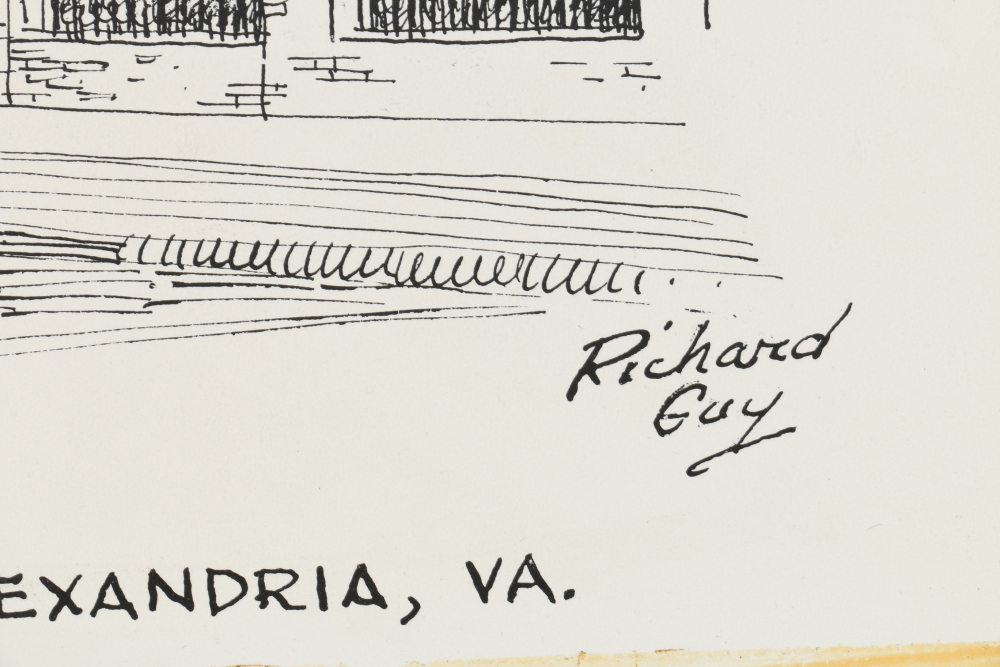 Richard
Guy
EXANDRIA, VA.